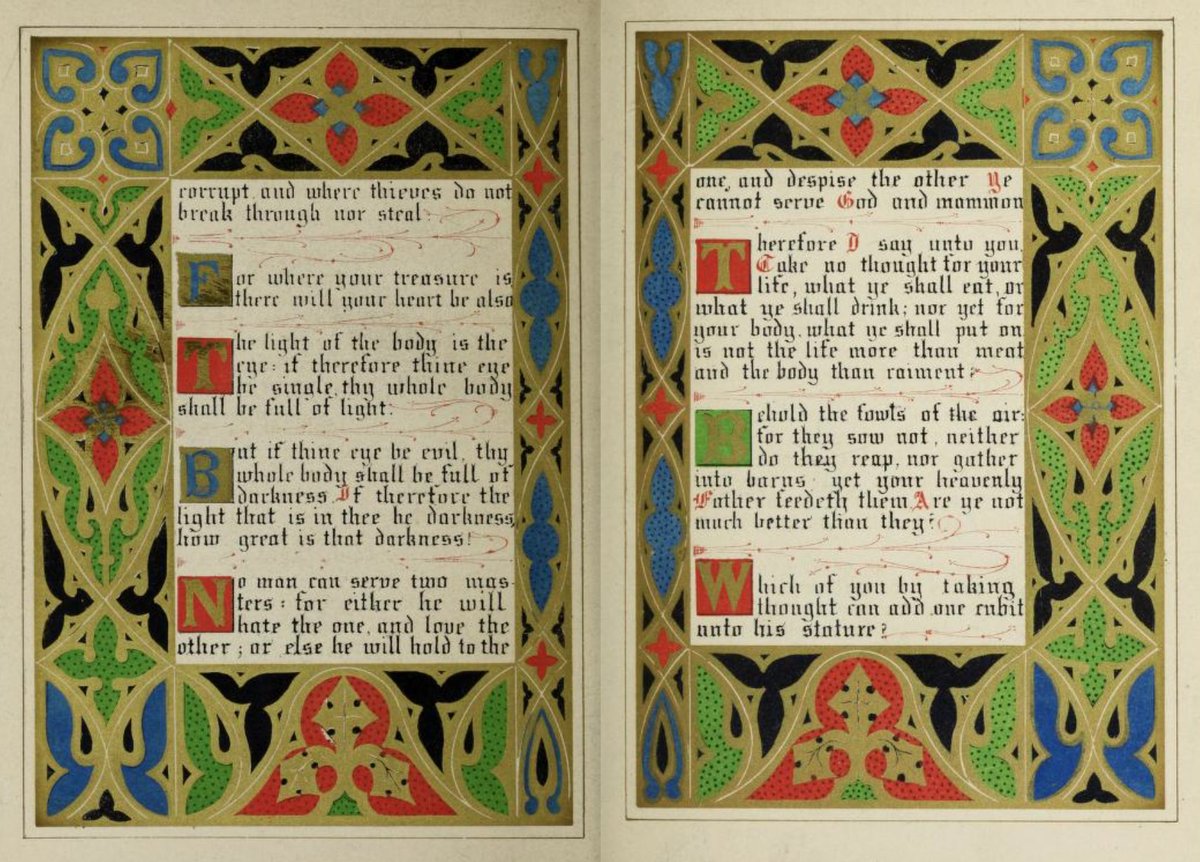 corrupt, and where thieves do not
break through nor steal.
For where your treasure is
there will your heart be also
The light of the body is the
eye: if therefore thine eye
be single, thy whole body
shall be full of light.
But if thine eye be evil, thy
whole body shall be full of
darkness. If therefore the
light that is in thee be darkness,
how great is that darkness!
No man can serve two mas-
ters: for either he will
hate the one, and love the
other; or else he will hold to the
one, and despise the other Ye
cannot serve God and mammon
Therefore I say unto you,
Take no thought for your
life, what ye shall eat, or
what ye shall drink; nor yet for
your body, what ye shall put on,
is not the life more than meat
and the body than raiment?
Behold the fowls of the air:
for they sow not, neither
do they reap, nor gather
into barns. yet your heavenly
Father feedeth them. Are ye not
much better than they?
Which of you by taking
thought can add one cubit
unto his stature?